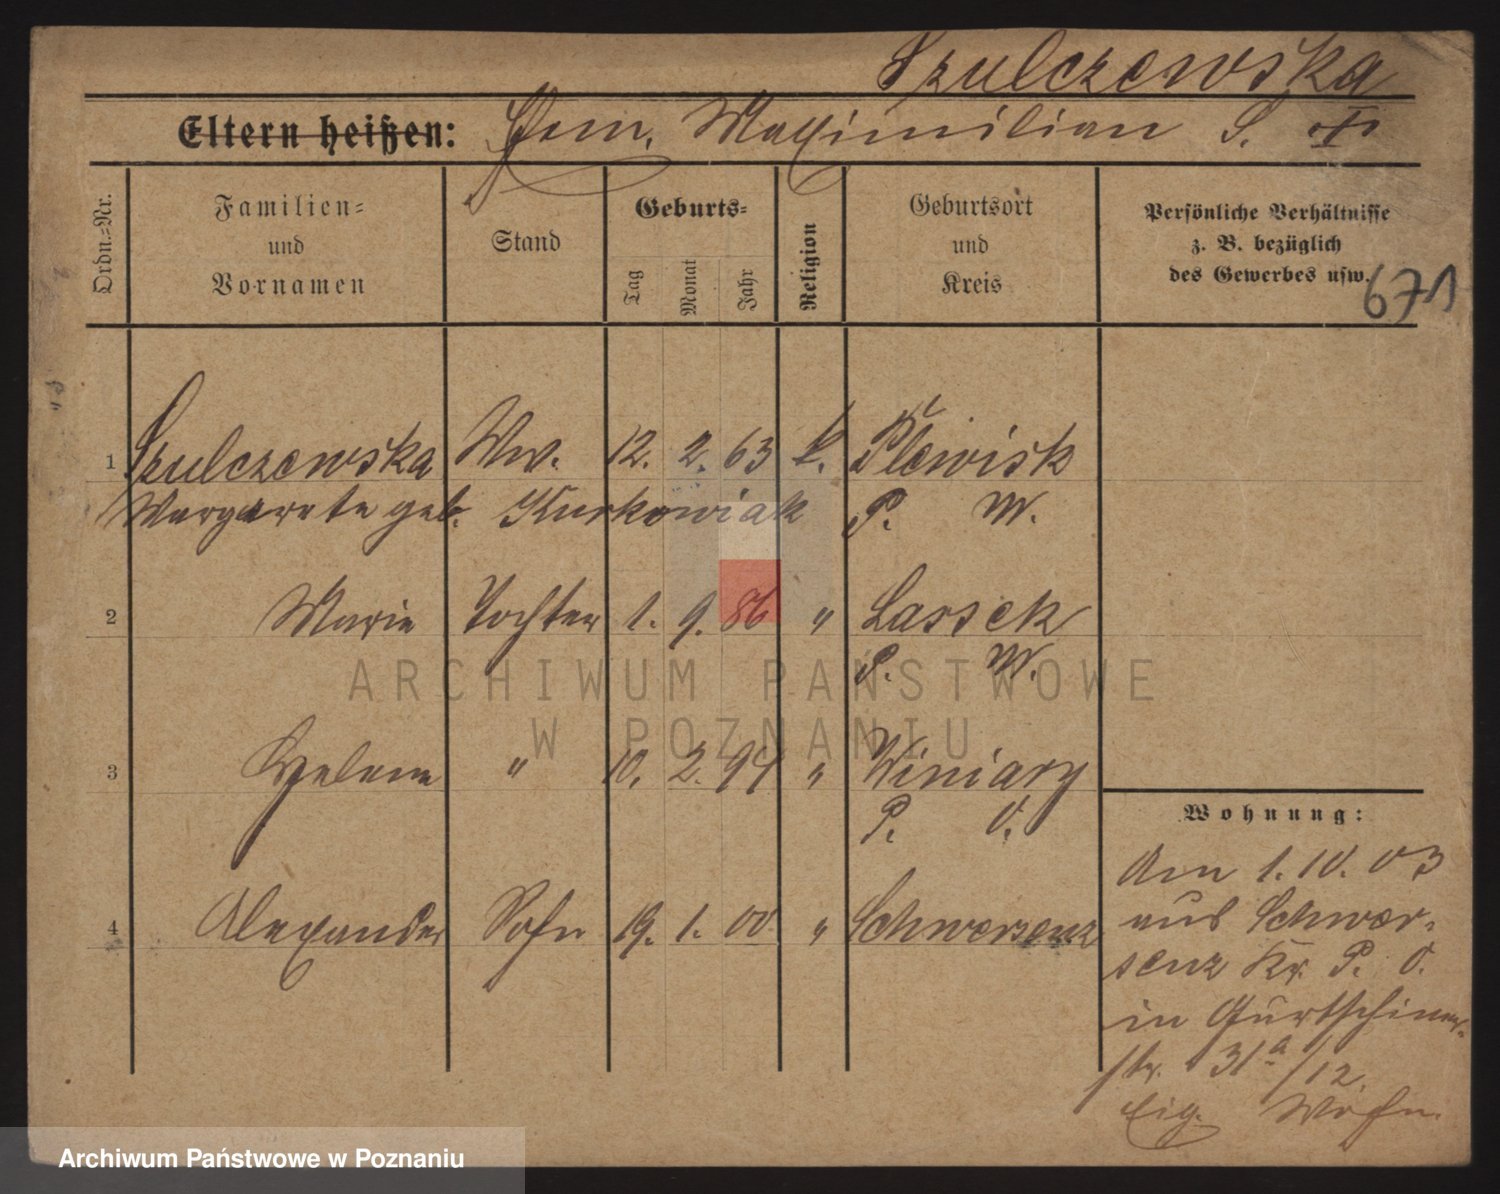 Szulczewska
Eltern heißen: Ehem. Maximilian S. †
Ordn.-Nr.
Familien-
und
Vornamen
Stand
Geburts-
Tag
Monat
Jahr
Religion
Geburtsort
und
Kreis
Persönliche Verhältnisse
z. B. bezüglich
des Gewerbes usw.
671
1 Szulczewska Ww. 12. 2. 63 k. Plewisk
Margarete geb. Kurkowiak P. W.
2 Marie Tochter 1. 9. 86 " Lassek
P. W.
3 Helene " 10. 2. 94 " Winiary
P. O.
4 Alexander Sohn 19. 1. 00 " Schwersenz
Wohnung:
Am 1.10.03
aus Schwer-
senz Kr. P. O.
in Gurtschiner-
str. 31a/12.
Eig. Wohn.
ARCHIWUM PAŃSTWOWE
W POZNANIU
Archiwum Państwowe w Poznaniu